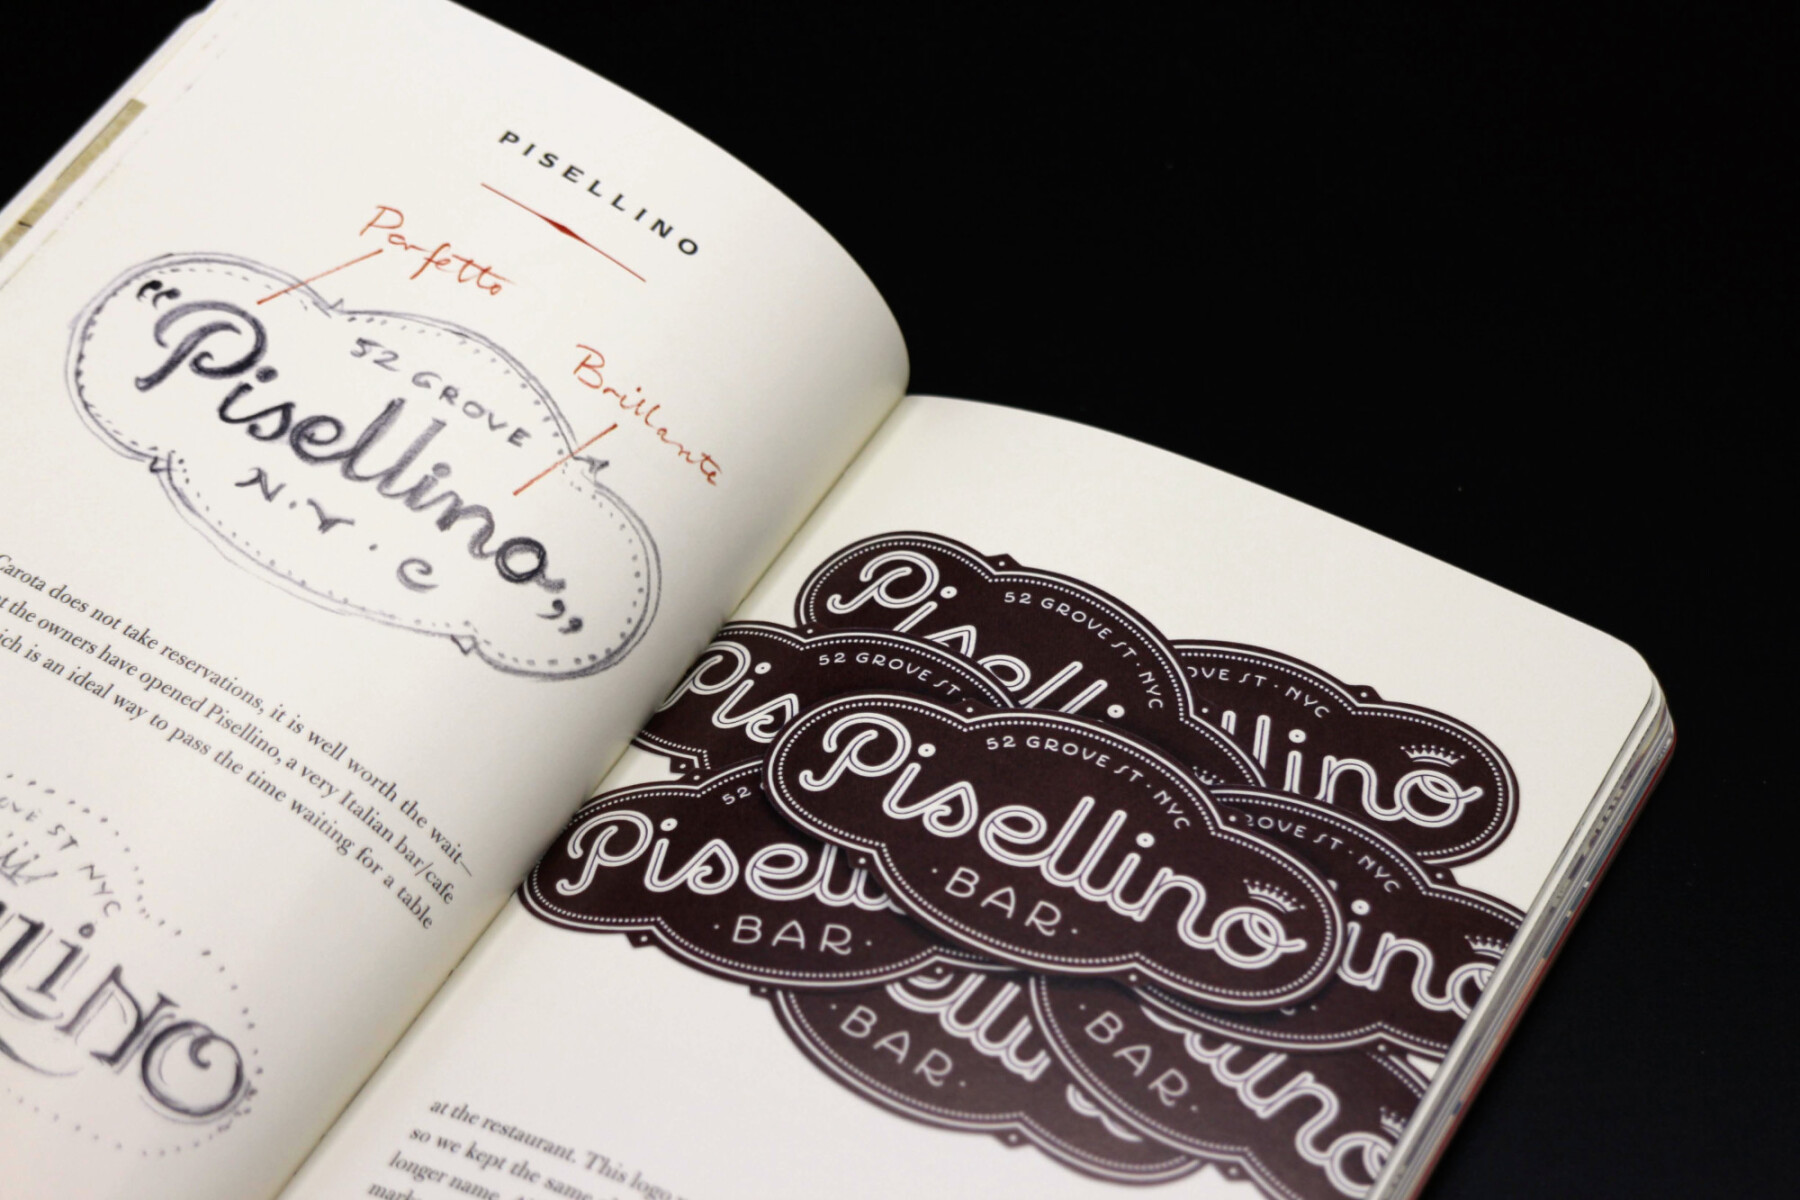 PISELLINO
Perfetto
Brillante
52 GROVE
“Pisellino”
N.Y.C
Carota does not take reservations, it is well worth the wait—
the owners have opened Pisellino, a very Italian bar/cafe
which is an ideal way to pass the time waiting for a table
OVE ST NYC
LLINO
52 GROVE ST · NYC
Pisellin
OVE ST · NYC
llino
52 GROVE ST ·
Pis
52 GROVE ST · NYC
Pisellino
· BAR ·
52
Pisell
· BAR ·
OVE ST · NYC
ino
ellin
· BAR ·
· BAR ·
lino
at the restaurant. This logo
so we kept the same
longer name.